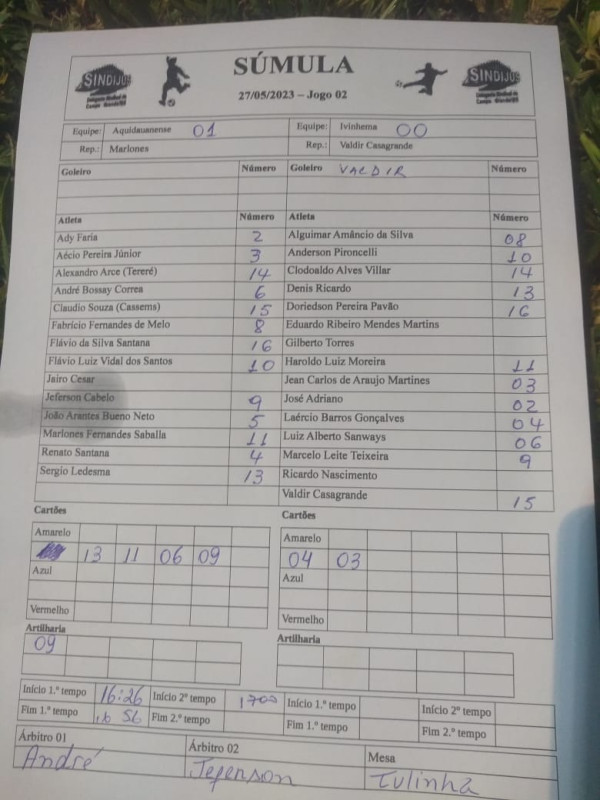 SÚMULA
SINDIJUS SINDIJUS
27/05/2023 – Jogo 02
Equipe: Aquidauanense 01 Equipe: Ivinhema 00
Rep.: Marlones Rep.: Valdir Casagrande
Goleiro Número Goleiro VALDIR Número
Atleta Número Atleta Número
Ady Faria 2 Alguimar Amâncio da Silva 08
Aécio Pereira Júnior 3 Anderson Pironcelli 10
Alexandro Arce (Tereré) 14 Clodoaldo Alves Villar 14
André Bossay Correa 6 Denis Ricardo 13
Claudio Souza (Cassems) 15 Doriedson Pereira Pavão 16
Fabrício Fernandes de Melo 8 Eduardo Ribeiro Mendes Martins
Flávio da Silva Santana 16 Gilberto Torres
Flávio Luiz Vidal dos Santos 10 Haroldo Luiz Moreira 11
Jairo Cesar Jean Carlos de Araujo Martines 03
Jeferson Cabelo 9 José Adriano 02
João Arantes Bueno Neto 5 Laércio Barros Gonçalves 04
Marlones Fernandes Saballa 11 Luiz Alberto Sanways 06
Renato Santana 4 Marcelo Leite Teixeira 9
Sergio Ledesma 13 Ricardo Nascimento
Valdir Casagrande 15
Cartões Cartões
Amarelo Amarelo
13 11 06 09 04 03
Azul Azul
Vermelho Vermelho
Artilharia Artilharia
09
Início 1.º tempo 16:26 Início 2º tempo 1700 Início 1.º tempo Início 2º tempo
Fim 1.º tempo 16 56 Fim 2.º tempo Fim 1.º tempo Fim 2.º tempo
Árbitro 01 Árbitro 02 Mesa
André Jefenson Tulinha